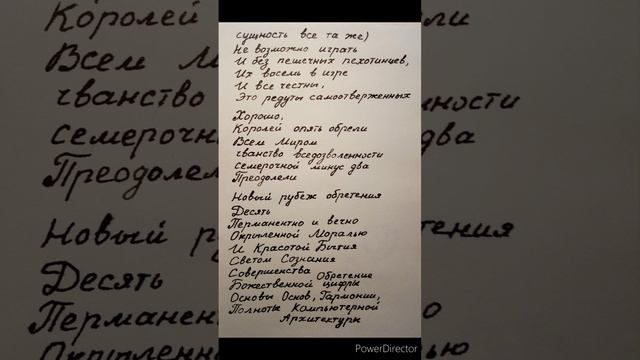 сущность все та же)
Не возможно играть
И без пешечных пехотинцев,
Их восемь в игре
И все честны,
Это редуты самоотверженных
Хорошо,
Королей опять обрели
Всем Миром
чванство вседозволенности
семерочной минус два
Преодолели
Новый рубеж обретения
Десять
Перманентно и вечно
Окрыленной Моралью
И Красотой Бытия
Светом Сознания
Совершенства Обретение
Божественной цифры
Основы Основ, Гармонии,
Полноты Компьютерной
Архитектуры
PowerDirector